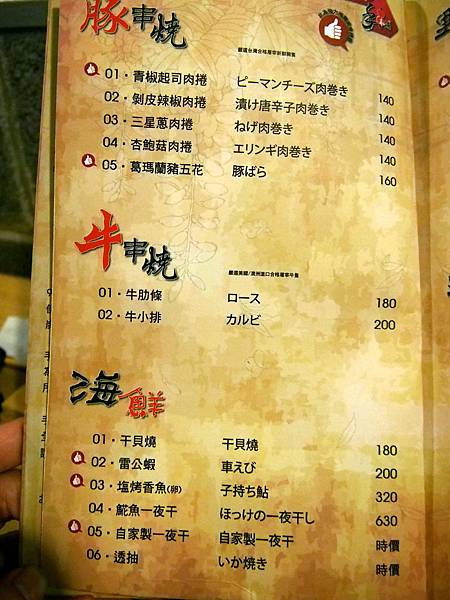 豚串燒
01・青椒起司肉捲 ピーマンチーズ肉巻き 140
02・剝皮辣椒肉捲 漬け唐辛子肉巻き 140
03・三星蔥肉捲 ねげ肉巻き 140
04・杏鮑菇肉捲 エリンギ肉巻き 140
05・葛瑪蘭豬五花 豚ばら 160
牛串燒
嚴選美國/澳洲進口合格屠宰牛隻
01・牛肋條 ロース 180
02・牛小排 カルビ 200
海鮮
01・干貝燒 干貝燒 180
02・雷公蝦 車えび 200
03・塩烤香魚(卵) 子持ち鮎 320
04・鯱魚一夜干 ほっけの一夜干し 630
05・自家製一夜干 自家製一夜干 時價
06・透抽 いか焼き 時價